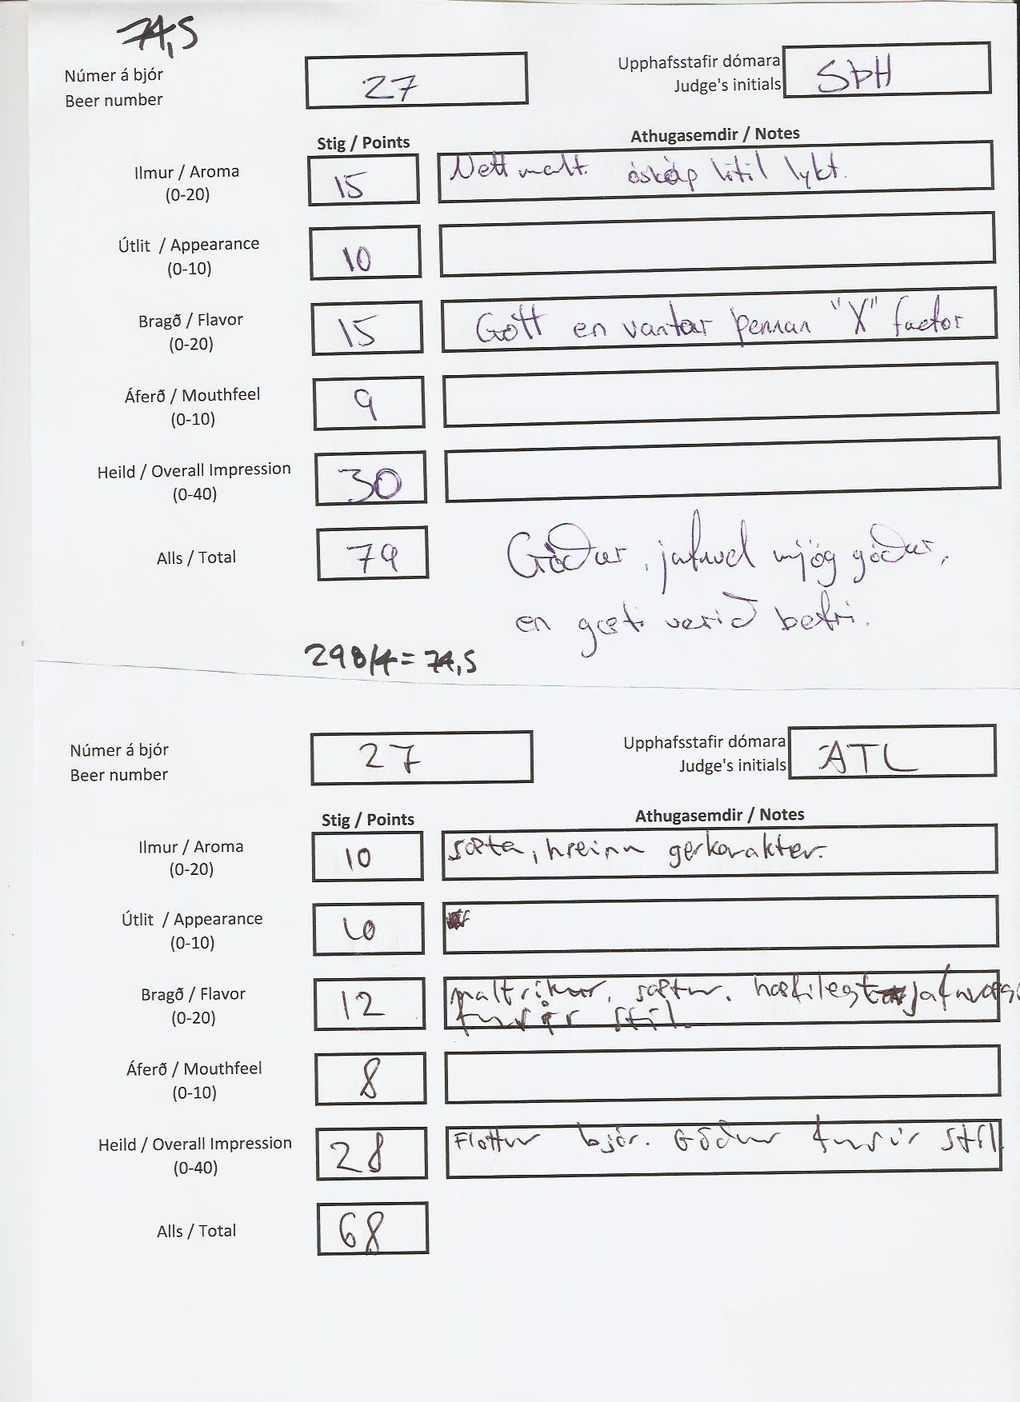 74,5
Númer á bjór
Beer number
27
Upphafsstafir dómara
Judge's initials
SÞH
Stig / Points
Athugasemdir / Notes
Ilmur / Aroma
(0-20)
15
Nett malt. óskáp lítil lykt.
Útlit / Appearance
(0-10)
10
Bragð / Flavor
(0-20)
15
Gott en vantar þennan "X" factor
Áferð / Mouthfeel
(0-10)
9
Heild / Overall Impression
(0-40)
30
Alls / Total
79
Góður, jafnvel mjög góður,
en gæti verið betri.
298/4 = 74,5
Númer á bjór
Beer number
27
Upphafsstafir dómara
Judge's initials
ATL
Stig / Points
Athugasemdir / Notes
Ilmur / Aroma
(0-20)
10
sæta, hreinn gerkarakter.
Útlit / Appearance
(0-10)
10
Bragð / Flavor
(0-20)
12
maltríkur, sætur, hæfilegt
fyrir stíl.
Áferð / Mouthfeel
(0-10)
8
Heild / Overall Impression
(0-40)
28
Flottur bjór. Góður fyrir stíl
Alls / Total
68